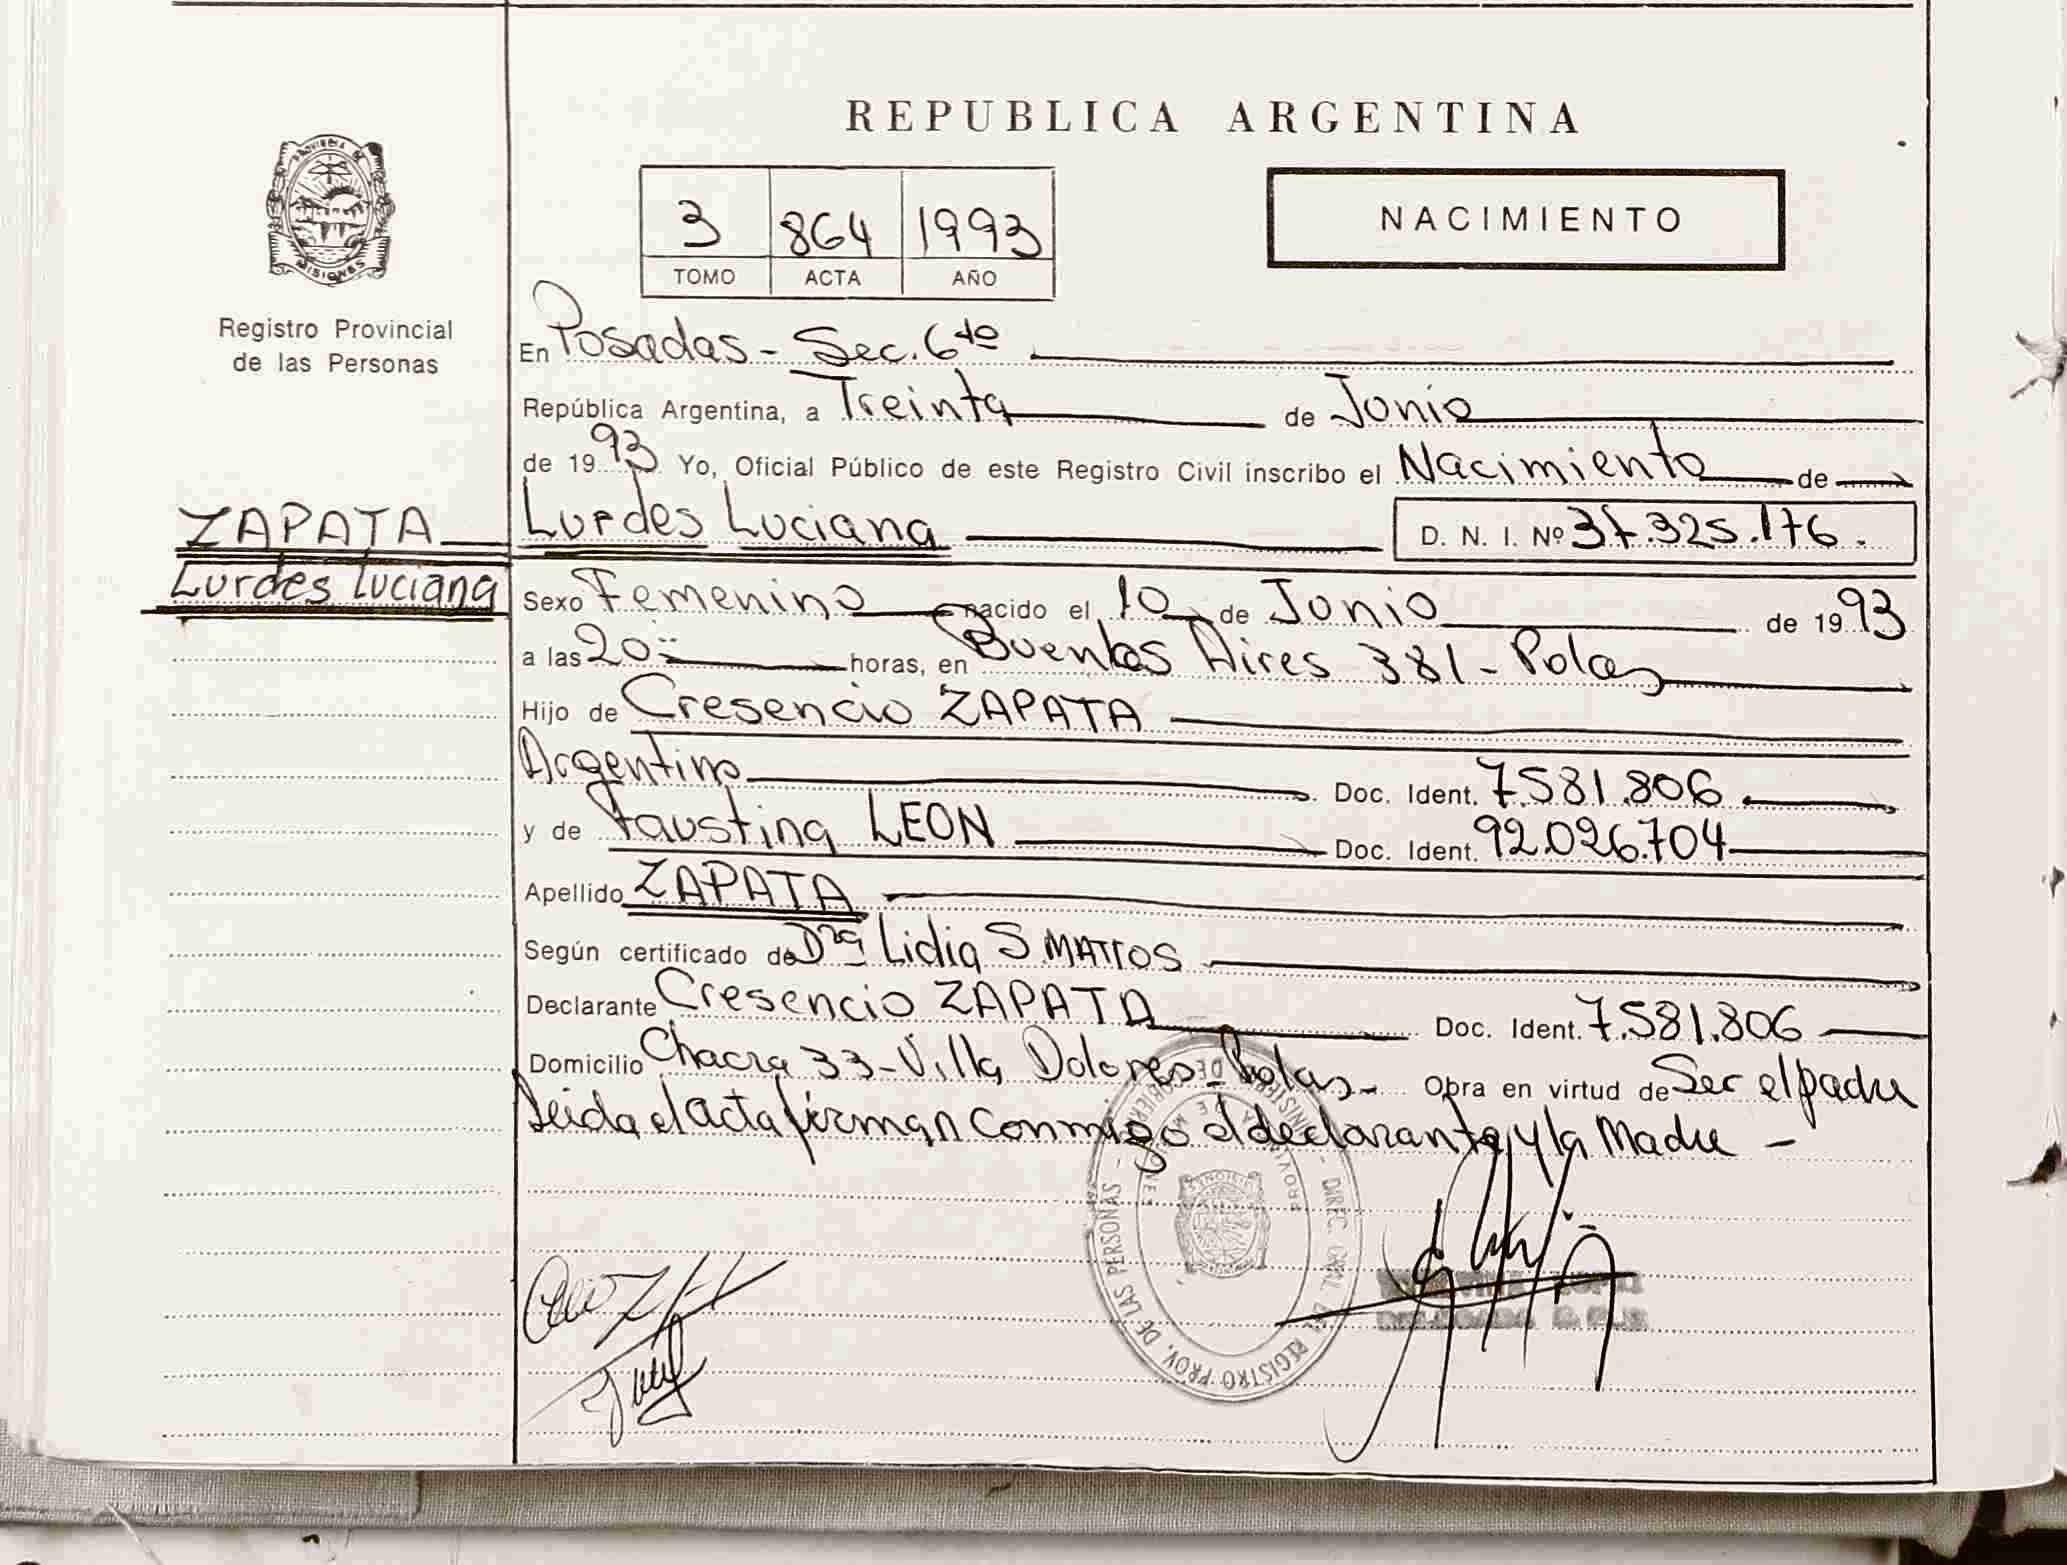 REPUBLICA ARGENTINA
PROVINCIA DE
MISIONES
Registro Provincial
de las Personas
3 864 1993
TOMO ACTA AÑO
NACIMIENTO
En Posadas - Sec. 6ta
República Argentina, a Treinta de Junio
de 1993 Yo, Oficial Público de este Registro Civil inscribo el Nacimiento de
ZAPATA Lurdes Luciana D. N. I. Nº 37.325.176.
Lurdes Luciana
Sexo Femenino nacido el 10 de Junio de 1993
a las 20 horas, en Buenos Aires 381 - Pdas
Hijo de Cresencio ZAPATA
Argentino Doc. Ident. 7.581.806
y de Faustina LEON Doc. Ident. 92.026.704
Apellido ZAPATA
Según certificado de Dra Lidia S. MATTOS
Declarante Cresencio ZAPATA Doc. Ident. 7.581.806
Domicilio Chacra 33 - Villa Dolores - Pdas - Obra en virtud de Ser el padre
Leida el acta firman conmigo el declarante y la Madre -
DIREC. GRAL. DEL REGISTRO PROV. DE LAS PERSONAS -